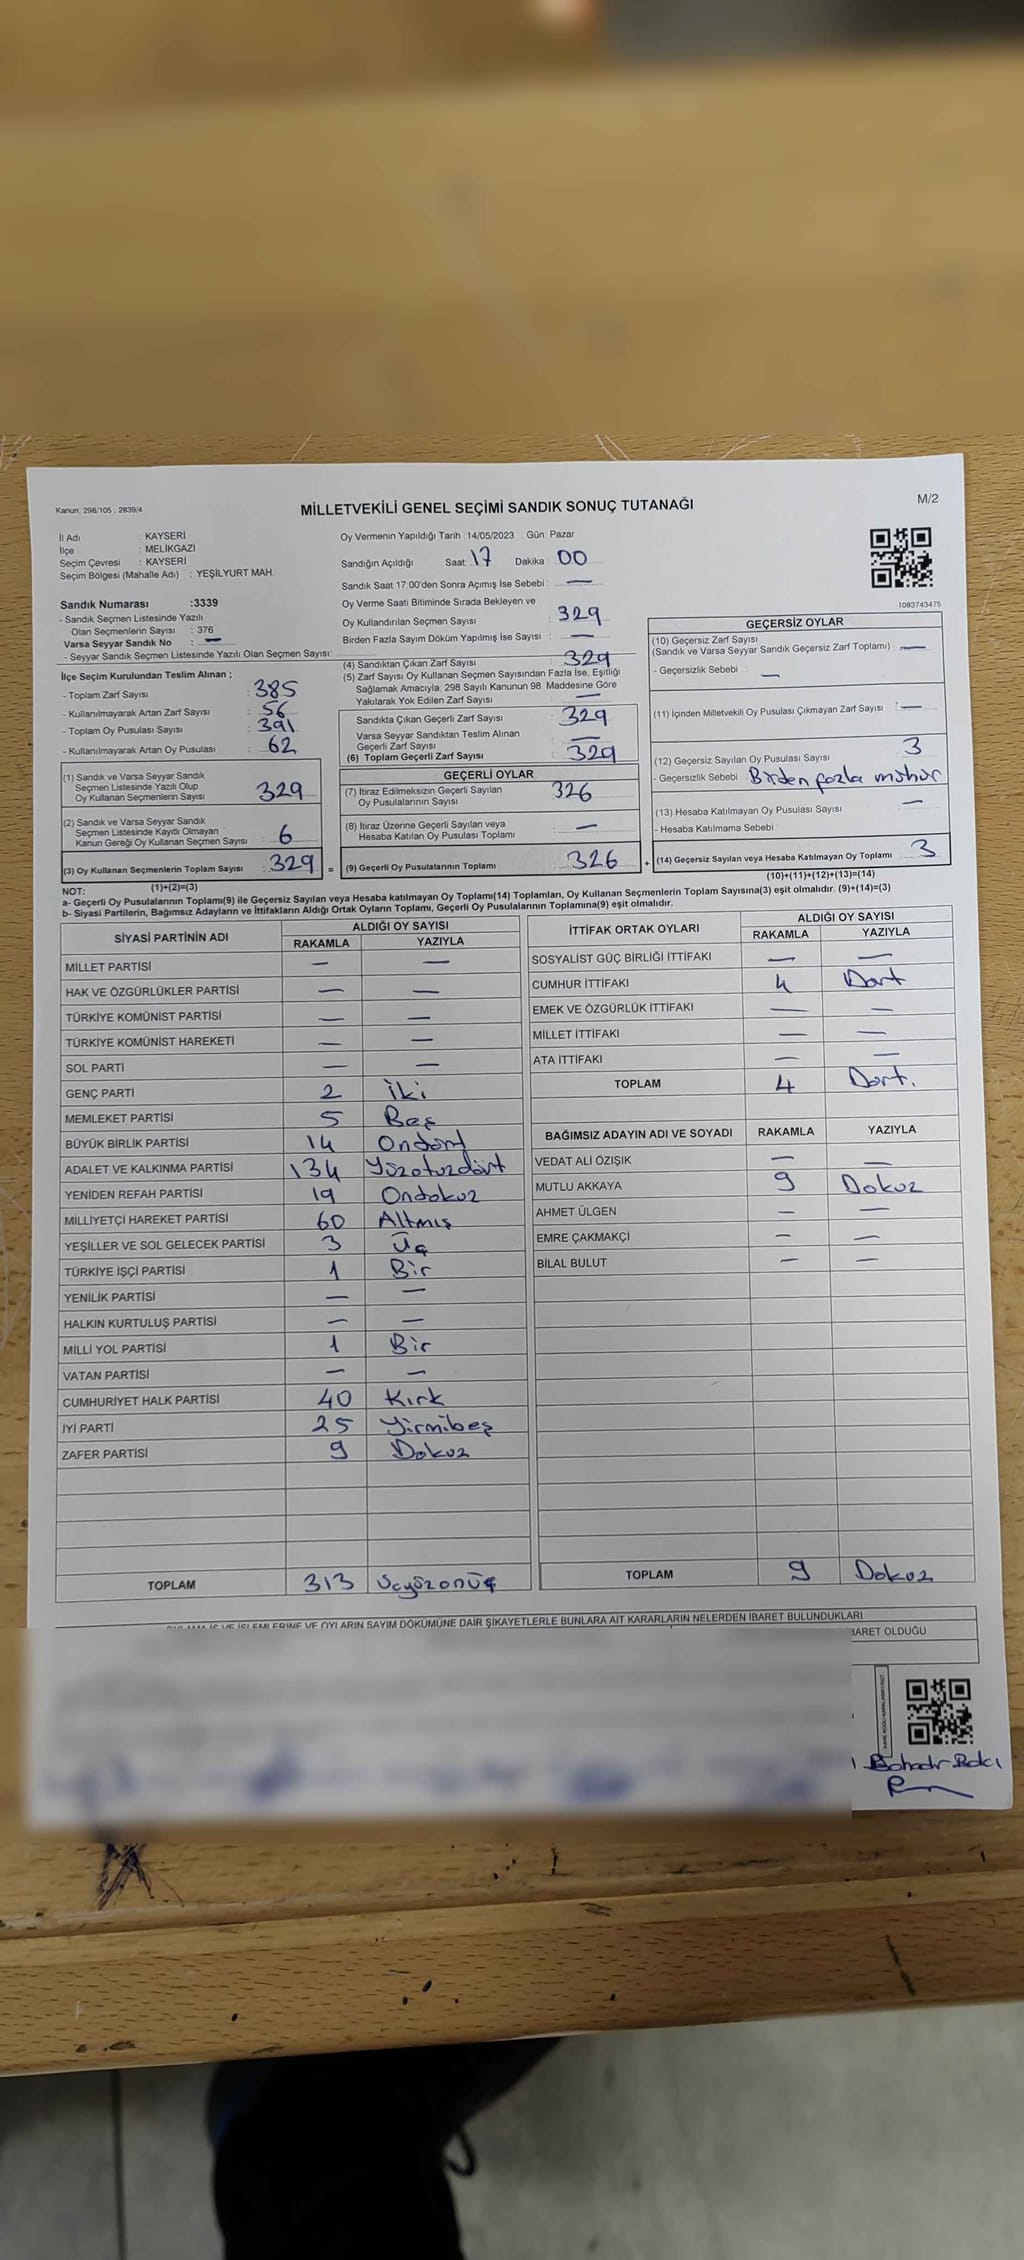 Kanun; 298/105 , 2839/4
MİLLETVEKİLİ GENEL SEÇİMİ SANDIK SONUÇ TUTANAĞI
M/2
İl Adı : KAYSERİ
İlçe : MELİKGAZİ
Seçim Çevresi : KAYSERİ
Seçim Bölgesi (Mahalle Adı) : YEŞİLYURT MAH.
Sandık Numarası :3339
- Sandık Seçmen Listesinde Yazılı
Olan Seçmenlerin Sayısı : 376
Varsa Seyyar Sandık No : —
- Seyyar Sandık Seçmen Listesinde Yazılı Olan Seçmen Sayısı:
Oy Vermenin Yapıldığı Tarih :14/05/2023 Gün: Pazar
Sandığın Açıldığı Saat: 17 Dakika : 00
Sandık Saat 17:00'den Sonra Açımış İse Sebebi : —
Oy Verme Saati Bitiminde Sırada Bekleyen ve
Oy Kullandırılan Seçmen Sayısı : 329
Birden Fazla Sayım Döküm Yapılmış İse Sayısı : —
1083743475
İlçe Seçim Kurulundan Teslim Alınan ;
- Toplam Zarf Sayısı : 385
- Kullanılmayarak Artan Zarf Sayısı : 56
- Toplam Oy Pusulası Sayısı : 391
- Kullanılmayarak Artan Oy Pusulası : 62
(1) Sandık ve Varsa Seyyar Sandık
Seçmen Listesinde Yazılı Olup
Oy Kullanan Seçmenlerin Sayısı : 329
(2) Sandık ve Varsa Seyyar Sandık
Seçmen Listesinde Kayıtlı Olmayan
Kanun Gereği Oy Kullanan Seçmen Sayısı : 6
(3) Oy Kullanan Seçmenlerin Toplam Sayısı : 329 =
(1)+(2)=(3)
(4) Sandıktan Çıkan Zarf Sayısı : 329
(5) Zarf Sayısı Oy Kullanan Seçmen Sayısından Fazla İse, Eşitliği
Sağlamak Amacıyla, 298 Sayılı Kanunun 98. Maddesine Göre
Yakılarak Yok Edilen Zarf Sayısı : —
Sandıkta Çıkan Geçerli Zarf Sayısı : 329
Varsa Seyyar Sandıktan Teslim Alınan
Geçerli Zarf Sayısı : —
(6) Toplam Geçerli Zarf Sayısı : 329
GEÇERLİ OYLAR
(7) İtiraz Edilmeksizin Geçerli Sayılan
Oy Pusulalarının Sayısı : 326
(8) İtiraz Üzerine Geçerli Sayılan veya
Hesaba Katılan Oy Pusulası Toplamı : —
(9) Geçerli Oy Pusulalarının Toplamı : 326 +
GEÇERSİZ OYLAR
(10) Geçersiz Zarf Sayısı
(Sandık ve Varsa Seyyar Sandık Geçersiz Zarf Toplamı) : —
- Geçersizlik Sebebi : —
(11) İçinden Milletvekili Oy Pusulası Çıkmayan Zarf Sayısı : —
(12) Geçersiz Sayılan Oy Pusulası Sayısı : 3
- Geçersizlik Sebebi : Birden fazla mühür
(13) Hesaba Katılmayan Oy Pusulası Sayısı : —
- Hesaba Katılmama Sebebi :
(14) Geçersiz Sayılan veya Hesaba Katılmayan Oy Toplamı : 3
(10)+(11)+(12)+(13)=(14)
NOT:
a- Geçerli Oy Pusulalarının Toplamı(9) ile Geçersiz Sayılan veya Hesaba katılmayan Oy Toplamı(14) Toplamları, Oy Kullanan Seçmenlerin Toplam Sayısına(3) eşit olmalıdır. (9)+(14)=(3)
b- Siyasi Partilerin, Bağımsız Adayların ve İttifakların Aldığı Ortak Oyların Toplamı, Geçerli Oy Pusulalarının Toplamına(9) eşit olmalıdır.
SİYASİ PARTİNİN ADI ALDIĞI OY SAYISI
RAKAMLA YAZIYLA
MİLLET PARTİSİ — —
HAK VE ÖZGÜRLÜKLER PARTİSİ — —
TÜRKİYE KOMÜNİST PARTİSİ — —
TÜRKİYE KOMÜNİST HAREKETİ — —
SOL PARTİ — —
GENÇ PARTİ 2 İki
MEMLEKET PARTİSİ 5 Beş
BÜYÜK BİRLİK PARTİSİ 14 Ondört
ADALET VE KALKINMA PARTİSİ 134 Yüzotuzdört
YENİDEN REFAH PARTİSİ 19 Ondokuz
MİLLİYETÇİ HAREKET PARTİSİ 60 Altmış
YEŞİLLER VE SOL GELECEK PARTİSİ 3 Üç
TÜRKİYE İŞÇİ PARTİSİ 1 Bir
YENİLİK PARTİSİ — —
HALKIN KURTULUŞ PARTİSİ — —
MİLLİ YOL PARTİSİ 1 Bir
VATAN PARTİSİ — —
CUMHURİYET HALK PARTİSİ 40 Kırk
İYİ PARTİ 25 Yirmibeş
ZAFER PARTİSİ 9 Dokuz
TOPLAM 313 Üçyüzonüç
İTTİFAK ORTAK OYLARI ALDIĞI OY SAYISI
RAKAMLA YAZIYLA
SOSYALİST GÜÇ BİRLİĞİ İTTİFAKI — —
CUMHUR İTTİFAKI 4 Dört
EMEK VE ÖZGÜRLÜK İTTİFAKI — —
MİLLET İTTİFAKI — —
ATA İTTİFAKI — —
TOPLAM 4 Dört.
BAĞIMSIZ ADAYIN ADI VE SOYADI RAKAMLA YAZIYLA
VEDAT ALİ ÖZIŞIK — —
MUTLU AKKAYA 9 Dokuz
AHMET ÜLGEN — —
EMRE ÇAKMAKÇİ — —
BİLAL BULUT — —
TOPLAM 9 Dokuz
OYLAMA İŞ VE İŞLEMLERİNE VE OYLARIN SAYIM DÖKÜMÜNE DAİR ŞİKAYETLERLE BUNLARA AİT KARARLARIN NELERDEN İBARET BULUNDUKLARI
BARET OLDUĞU